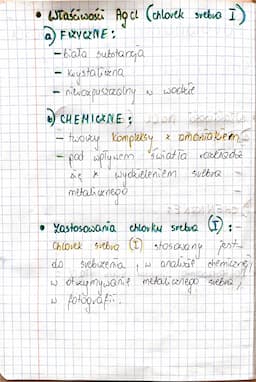 • Właściwości AgCl (chlorek srebra I)
a) FIZYCZNE:
- biała substancja
- krystaliczna
- nierozpuszczalny w wodzie
b) CHEMICZNE:
- tworzy kompleksy z amoniakiem
- pod wpływem światła rozkłada
się z wydzieleniem srebra
metalicznego
• Zastosowania chlorku srebra (I):
chlorek srebra (I) stosowany jest
do srebrzenia, w analizie chemicznej,
w otrzymywanie metalicznego srebra,
w fotografii.